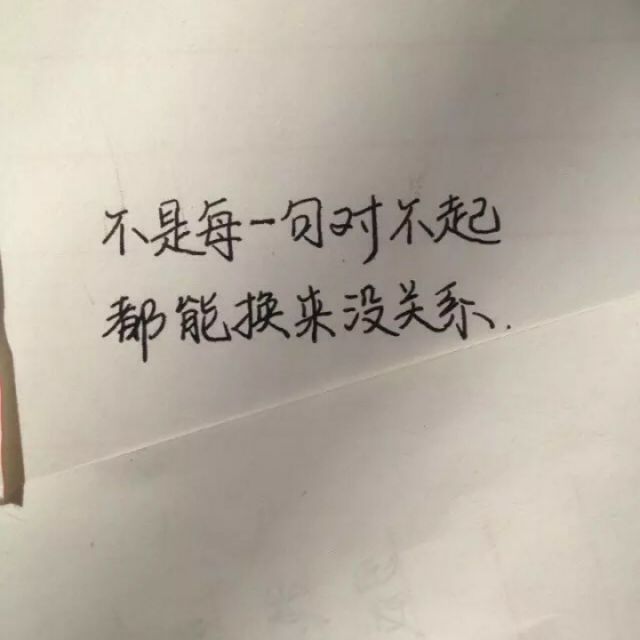 不是每一句对不起
都能换来没关系.